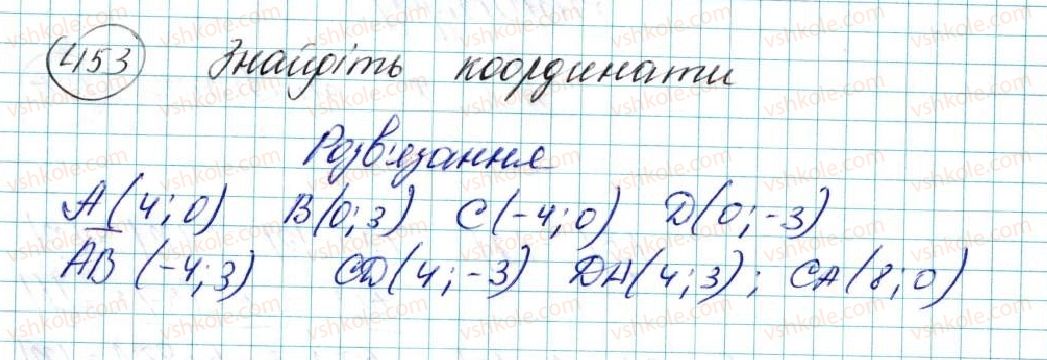 453 Знайдіть координати
Розв'язання
A(4;0) B(0;3) C(-4;0) D(0;-3)
AB (-4;3) CD(4;-3) DA(4;3); CA(8;0)